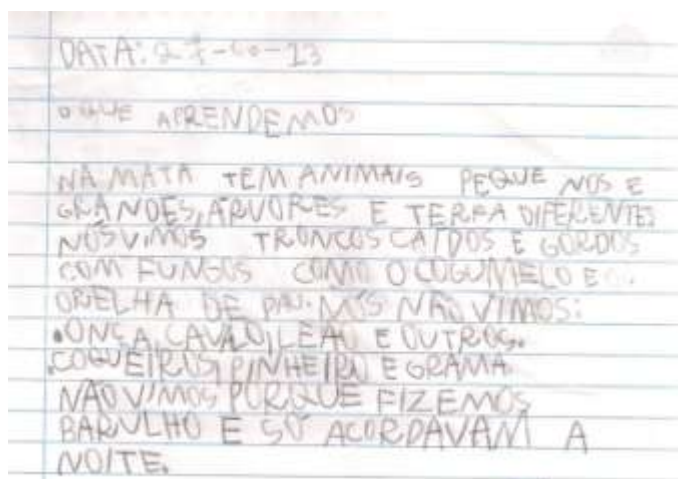 DATA: 27-10-13
O QUE APRENDEMOS
NA MATA TEM ANIMAIS PEQUENOS E
GRANDES, ÁRVORES E TERRA DIFERENTES
NÓS VIMOS TRONCOS CAÍDOS E GORDOS
COM FUNGOS COMO O COGUMELO E
ORELHA DE PAU. NÓS NÃO VIMOS:
•ONÇA, CAVALO, LEÃO E OUTROS.
•COQUEIROS, PINHEIRO E GRAMA
NÃO VIMOS PORQUE FIZEMOS
BARULHO E SÓ ACORDAVAM A
NOITE.